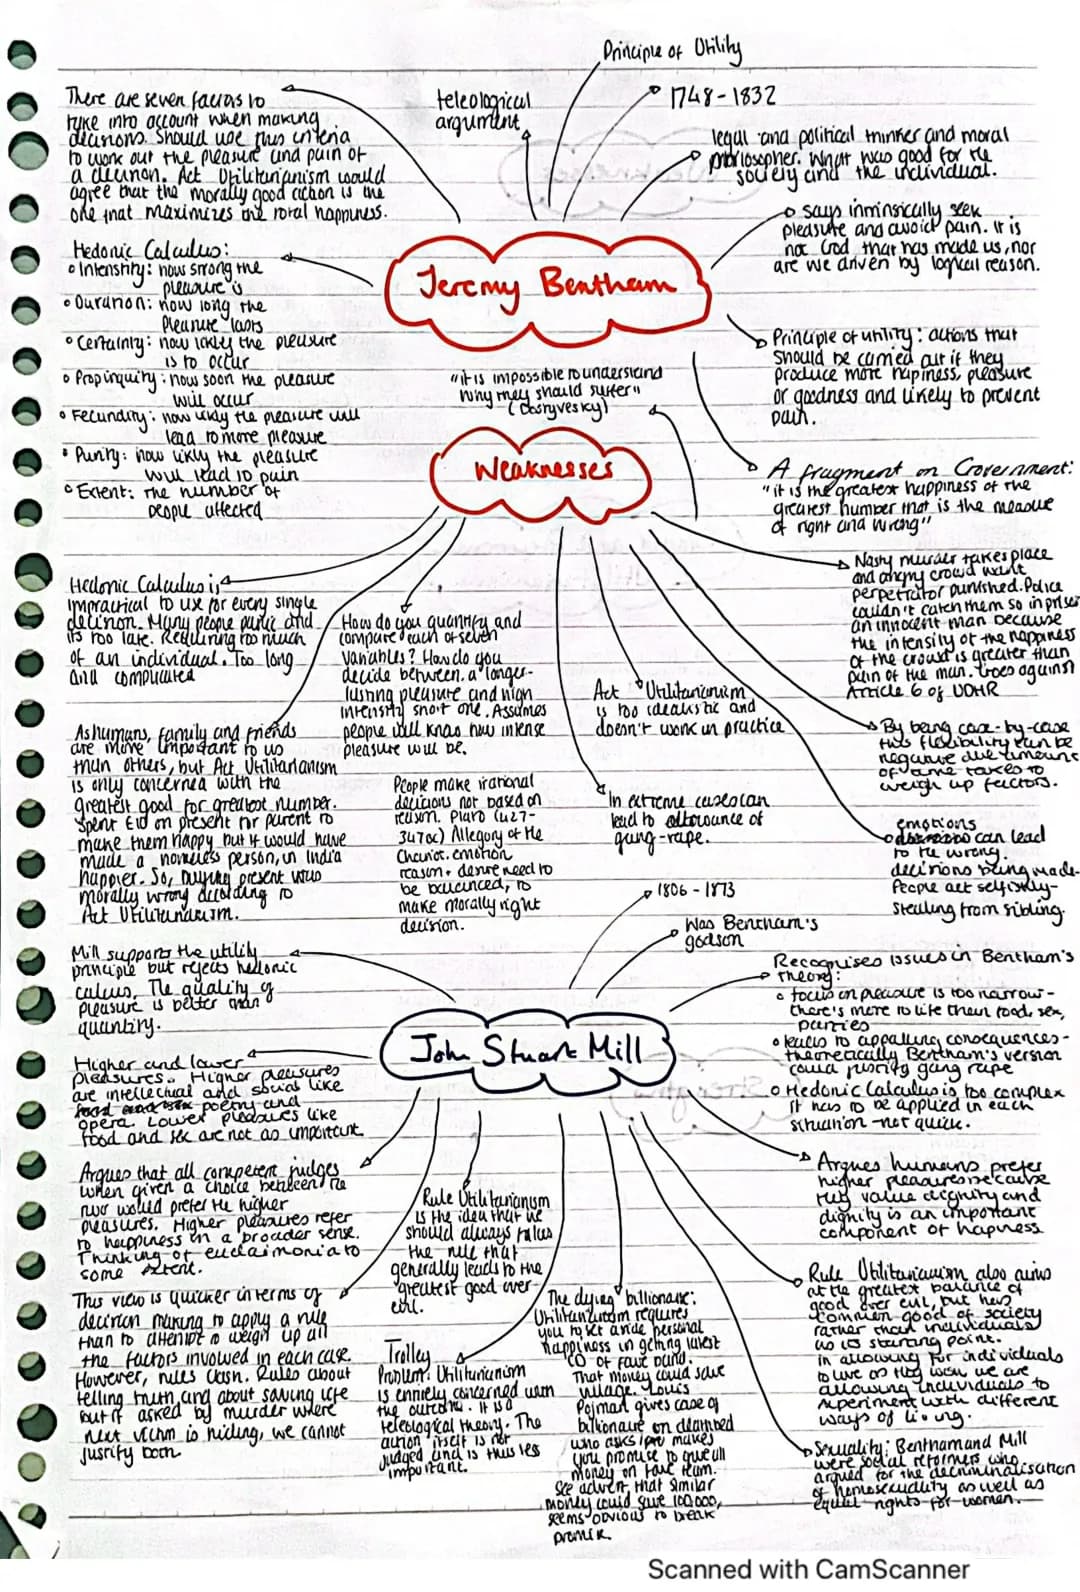 Principle of Utility
teleological
argument
1748-1832
legal and political thinker and moral
philosopher. What was good for the
society and the individual.
There are seven factors to
take into account when making
decisions. Should use this criteria
to work out the pleasure and pain of
a decision. Act Utilitarianism would
agree that the morally good action is the
one that maximizes the total happiness.
says intrinsically seek
pleasure and avoid pain. It is
not God that has made us, nor
are we driven by logical reason.
Jeremy Bentham
Hedonic Calculus:
Intensity: how strong the
pleasure is
Duration: how long the
pleasure lasts
Certainty: how likly the pleasure
is to occur
Propinquity: how soon the pleasure
will occur
Fecundity: how likly the pleasure will
lead to more pleasure
Purity: how likly the pleasure
will lead to pain
Extent: the number of
people affected
Principle of utility: actions that
should be carried out if they
produce more hapiness, pleasure
or goodness and likely to prevent
pain.
"it is impossible to understand
why they should suffer"
A fragment on Government:
"it is the greatest happiness of the
greatest number that is the measure
of right and wrong"
Weaknesses
Hedonic Calculus is
impractical to use for every single
decision. Many people panic and
its too late. Requiring too much
of an individual. Too long
and complicated
How do you quantify and
compare each of seven
variables? How do you
decide between a longer-
lasting pleasure and high
intensity short one. Assumes
people will know how intense
pleasure will be.
Nasty murder takes place
and angry crowd want
perpetrator punished. Police
couldn't catch them so in prison
an innocent man because
the intensity of the happiness
of the crowd is greater than
pain of the man. Goes against
Article 6 of UDHR
Act Utilitarianism
is too idealistic and
doesn't work in practice
As humans, family and friends
are more important to us
than others, but Act Utilitarianism
is only concerned with the
greatest good for greatest number.
Spent £10 on present for parent to
make them happy but it would have
made a homeless person, in India
happier. So, buying present was
morally wrong according to
Act Utilitarianism.
By being case-by-case
this flexibility can be
negative due amount
of time takes to
weigh up factors.
People make irrational
decisions not based on
reason. Plato (427-
347BC) Allegory of the
Chariot. emotion
reason, desire need to
be balanced, to
make morally right
decision.
In extreme cases can
lead to allowance of
gang-rape.
emotions
can lead
to the wrong
decisions being made.
People act selfishly-
stealing from sibling.
1806-1873
Was Bentham's
godson
Mill supports the utility
principle but rejects hedonic
calculus. The quality of
pleasure is better than
quantity.
Recognises issues in Bentham's
theory:
focus on pleasure is too narrow-
there's more to life than food, sex,
parties
leads to appalling consequences-
theoretically Bentham's version
could justify gang rape
Hedonic Calculus is too complex
it has to be applied in each
situation - not quick.
John Stuart Mill
Higher and lower
pleasures. Higher pleasures
are intellectual and social like
food and sex poetry and
opera. Lower pleasures like
food and sex are not as important
Argues that all competent judges
when given a choice between the
two would prefer the higher
pleasures. Higher pleasures refer
to happiness in a broader sense.
Thinking of eudaimonia to
some extent.
Rule Utilitarianism
is the idea that we
should always follow
the rule that
generally leads to the
greatest good over
evil.
Argues humans prefer
higher pleasures because
they value dignity and
dignity is an important
component of hapiness
This view is quicker in terms of
decision making to apply a rule
than to attempt to weigh up all
the factors involved in each case.
However, rules clash. Rules about
telling truth and about saving life
but if asked by murder where
next victim is hiding, we cannot
justify both
Trolley
Problem: Utilitarianism
is entirely concerned with
the outcome. It is a
teleological theory. The
action itself is not
judged and is thus less
important.
The dying billionaire:
Utilitarianism requires
you to set aside personal
happiness in getting latest
CD of fave band.
That money could save
village. Louis
Pojman gives case of
billionaire on deathbed
who asks makes
you promise to give all
money on fave team.
See advert, that similar
money could save 100,000,
seems obvious to break
promise.
Rule Utilitarianism also aims
at the greatest balance of
good over evil, but has
common good of society
rather than individuals
as its starting point.
in allowing for individuals
to live as they wish we are
allowing individuals to
experiment with different
ways of living.
Sexuality: Bentham and Mill
were social reformers who
argued for the decriminalisation
of homosexuality as well as
equal rights for women.
Scanned with CamScanner